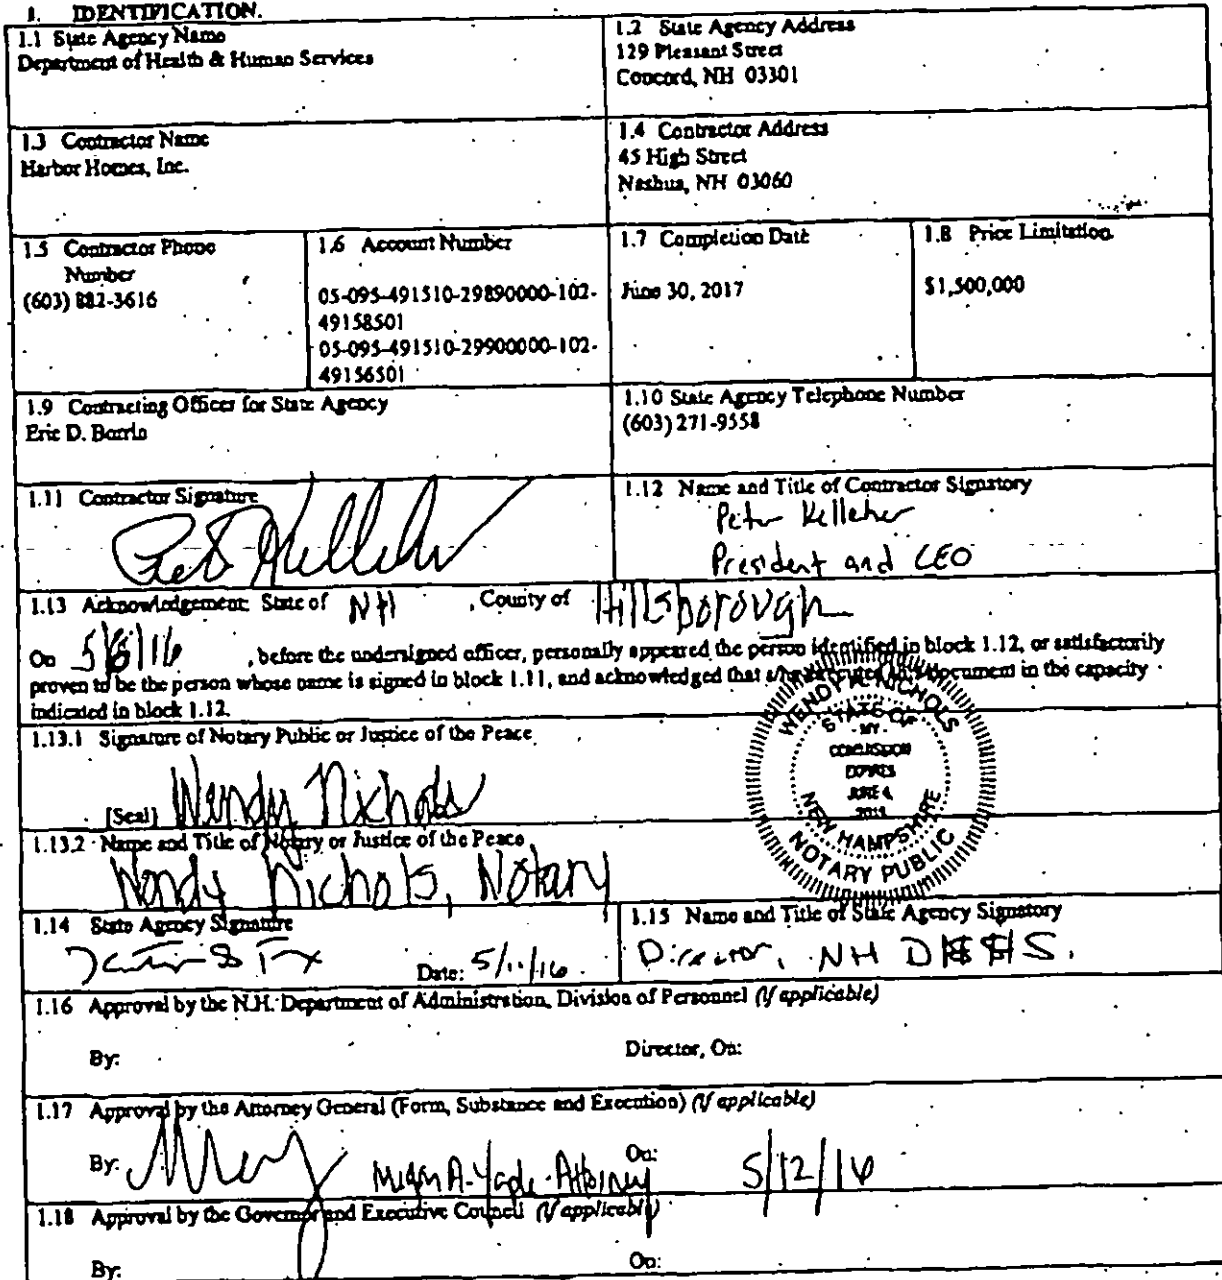 1. IDENTIFICATION.
1.1 State Agency Name
Department of Health & Human Services
1.2 State Agency Address
129 Pleasant Street
Concord, NH 03301
1.3 Contractor Name
Harbor Homes, Inc.
1.4 Contractor Address
45 High Street
Nashua, NH 03060
1.5 Contractor Phone
Number
(603) 882-3616
1.6 Account Number
05-095-491510-29890000-102-
49158501
05-095-491510-29900000-102-
49156501
1.7 Completion Date
June 30, 2017
1.8 Price Limitation
$1,500,000
1.9 Contracting Officer for State Agency
Eric D. Borrin
1.10 State Agency Telephone Number
(603) 271-9558
1.11 Contractor Signature
1.12 Name and Title of Contractor Signatory
Peter Kelleher
President and CEO
1.13 Acknowledgement: State of NH , County of Hillsborough
On 5/6/16 , before the undersigned officer, personally appeared the person identified in block 1.12, or satisfactorily
proven to be the person whose name is signed in block 1.11, and acknowledged that s/he executed this document in the capacity
indicated in block 1.12.
WENDY NICHOLS
STATE OF
- MY -
COMMISSION
EXPIRES
JUNE 4,
NEW HAMPSHIRE
NOTARY PUBLIC
1.13.1 Signature of Notary Public or Justice of the Peace
[Seal] Wendy Nichols
1.13.2 Name and Title of Notary or Justice of the Peace
Wendy Nichols, Notary
1.14 State Agency Signature
Date: 5/11/16
1.15 Name and Title of State Agency Signatory
Director, NH DHHS.
1.16 Approval by the N.H. Department of Administration, Division of Personnel (if applicable)
By: Director, On:
1.17 Approval by the Attorney General (Form, Substance and Execution) (if applicable)
By: Megan A. Yaple - Attorney On: 5/12/16
1.18 Approval by the Governor and Executive Council (if applicable)
By: On: